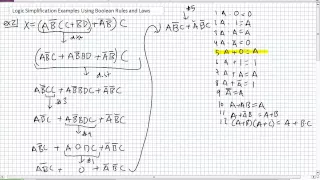 Logic Simplification Examples Using Boolean Rules and Laws
ex2] X = (AB̅(C+BD)+A̅B̅) C
dist
(AB̅C + AB̅BD + A̅B̅) C
dist
AB̅CC + AB̅BDC + A̅B̅C
#3
AB̅C + AB̅BDC + A̅B̅C
#4
AB̅C + A0DC + A̅B̅C
#1
AB̅C + 0 + A̅B̅C
#5
AB̅C + A̅B̅C
1 A·0=0
2 A·1=A
3 A·A=A
4 A·A̅=0
5 A+0=A
6 A+1=1
7 A+A=A
8 A+A̅=1
9 A̿=A
10 A+AB=A
11 A+A̅B=A+B
12 (A+B)(A+C)=A+BC